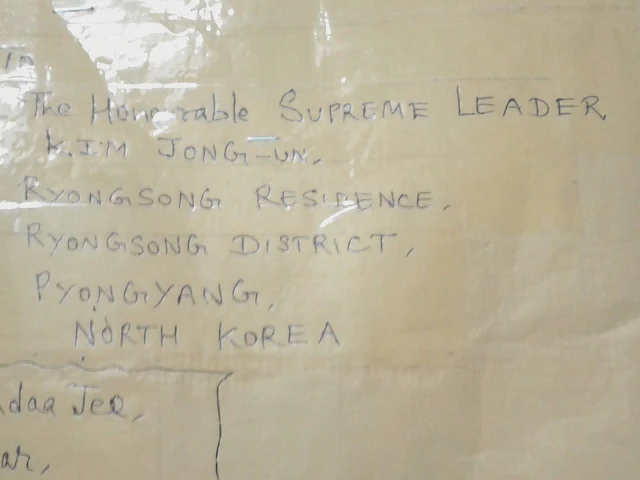 The Honourable SUPREME LEADER
KIM JONG-UN,
RYONGSONG RESIDENCE,
RYONGSONG DISTRICT,
PYONGYANG,
NORTH KOREA
Jee,